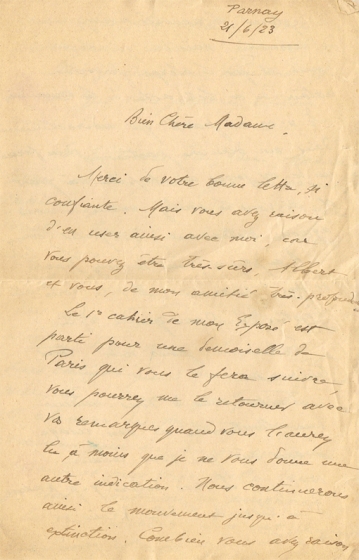 Parnay
21/6/23
Bien Chère Madame,
Merci de votre bonne lettre, si
confiante. Mais vous avez raison
d'en user ainsi avec moi, car
vous pouvez être très-sûrs, Albert
et vous, de mon amitié très-profonde
Le 1er cahier de mon Exposé est
parti pour une demoiselle de
Paris qui vous le fera suivre,
vous pourrez me le retourner avec
vos remarques quand vous l'aurez
lu à moins que je ne vous donne une
autre indication. Nous continuerons
ainsi le mouvement jusqu'à
extinction. Combien vous avez raison